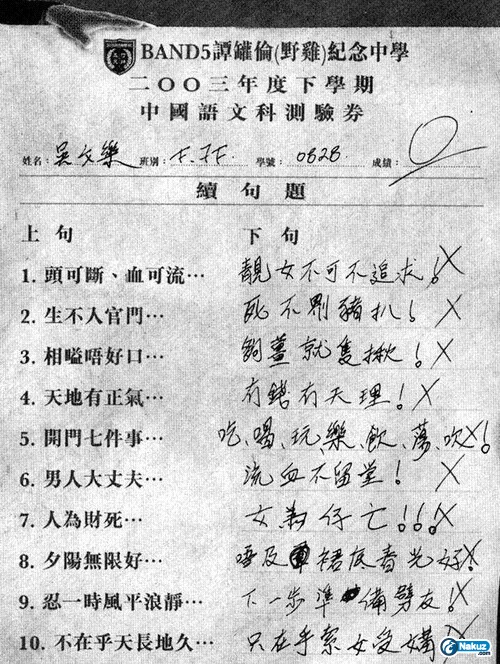 BAND5譚罐倫(野雞)紀念中學
二〇〇三年度下學期
中國語文科測驗券
姓名: 吳文樂 班別: 學號: 082B 成績: 0
續句題
上句 下句
1. 頭可斷、血可流… 靚女不可不追求! X
2. 生不入官門… 死不豬扒! X
3. 相嗌唔好口… 薑就隻揪! X
4. 天地有正氣… 有錢有天理! X
5. 開門七件事… 吃、喝、玩、樂、飲、蕩、吹! X
6. 男人大丈夫… 流血不留堂! X
7. 人為財死… 女為仔亡!!! X
8. 夕陽無限好… 唔及裙底春光好! X
9. 忍一時風平浪靜… 下一步準備劈友! X
10. 不在乎天長地久… 只在乎索女受媾 X
Nakuz.com